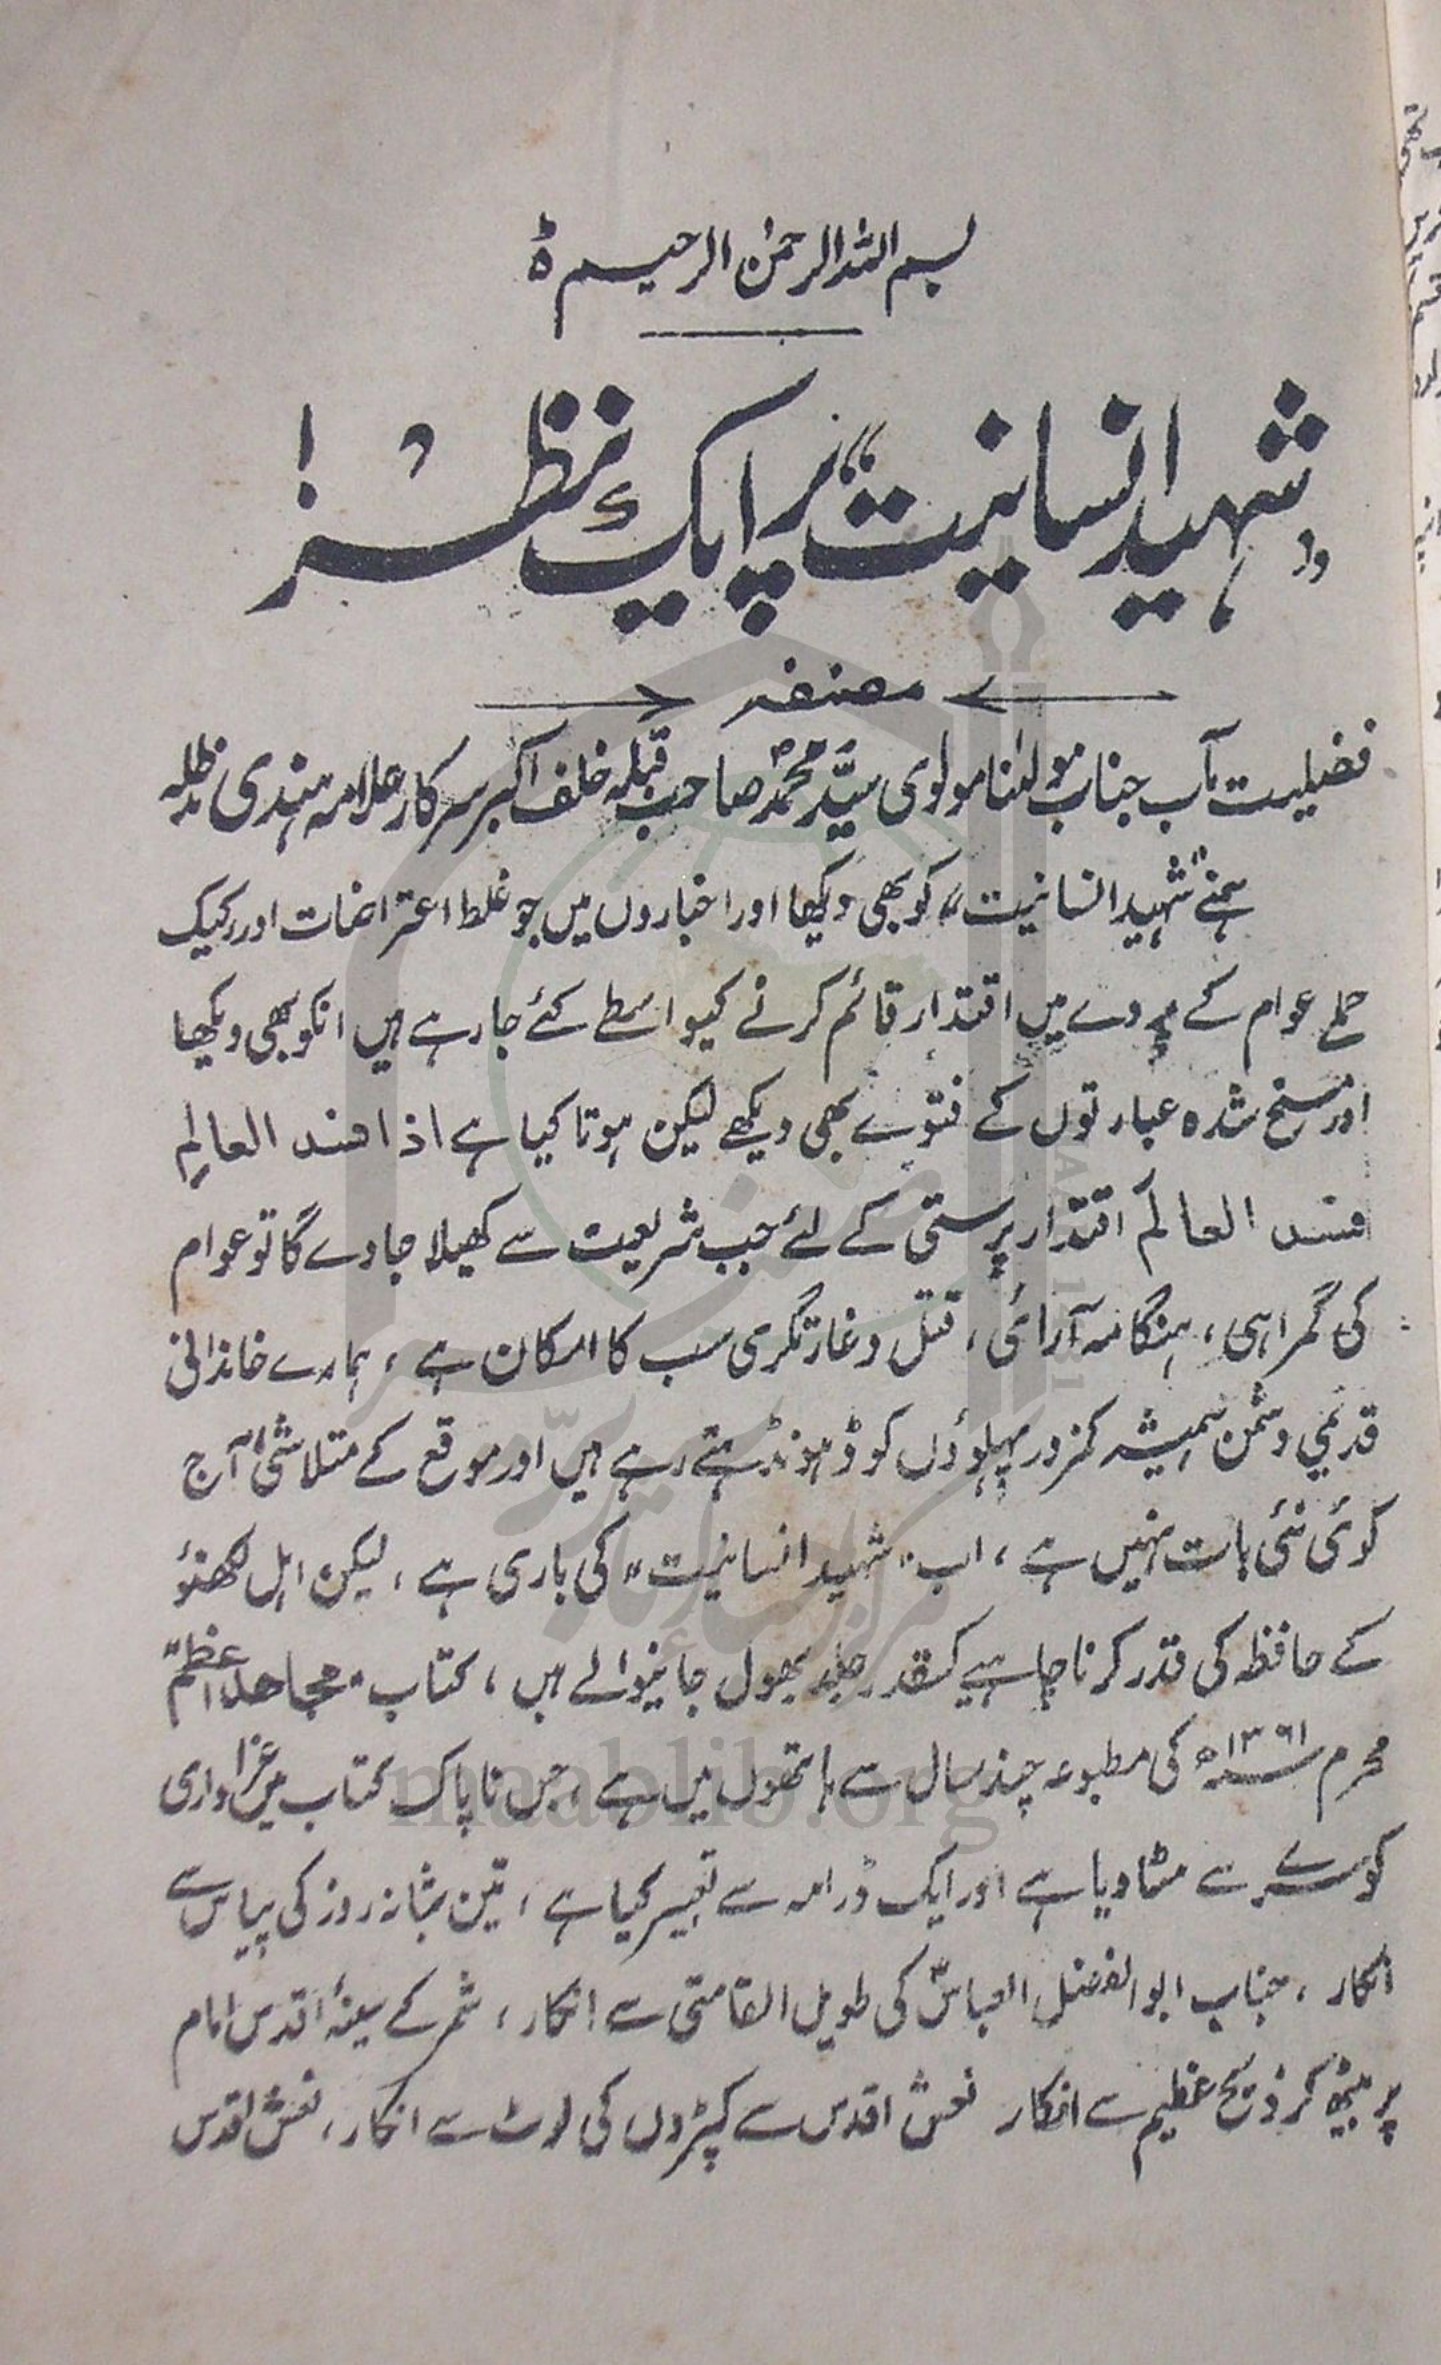 بسم اللہ الرحمٰن الرحیم ہ
”شہید انسانیت“ پر ایک نظر!
مصنفہ
فضیلیت مآب جناب مولٰنا مولوی سیّد محمدؐ صاحب قبلہ خلف اکبر سرکار علامہ ہندی مدظلہ
ہمنے ”شہید انسانیت“ کو بھی دیکھا اور اخباروں میں جو غلط اعتراضات اور رکیک
حملے عوام کے پردے میں اقتدار قائم کرنے کیواسطے کئے جارہے ہیں انکو بھی دیکھا
اور مسخ شدہ عبارتوں کے فتوے بھی دیکھے لیکن ہوتا کیا ہے اذا فسد العالِم
فسد العالَم اقتدار پرستی کے لئے جب شریعت سے کھیلا جاوے گا تو عوام
کی گمراہی، ہنگامہ آرائی، قتل و غارتگری سب کا امکان ہے، ہمارے خاندانی
قدیمی دشمن ہمیشہ کمزور پہلوؤں کو ڈھونڈہتے رہے ہیں اور موقع کے متلاشی آج
کوئی نئی بات نہیں ہے، اب ”شہید انسانیت“ کی باری ہے، لیکن اہل لکھنؤ
کے حافظہ کی قدر کرنا چاہیے کسقدر جلد بھول جانیوالے ہیں، کتاب ”مجاہد اعظم“
محرم ۱۳۶۱ھ کی مطبوعہ چند سال سے ہاتھوں میں ہے، جس ناپاک کتاب میں عزاداری
کو سرے سے مٹا دیا ہے اور ایک ڈرامہ سے تعبیر کیا ہے، تین شبانہ روز کی پیاس سے
انکار، جناب ابوالفضل العباسؑ کی طویل القامتی سے انکار، شمر کے سینۂ اقدس امام
پر بیٹھ کر ذبح عظیم سے انکار نعش اقدس سے کپڑوں کی لوٹ سے انکار، نعش اقدس
maablib.org